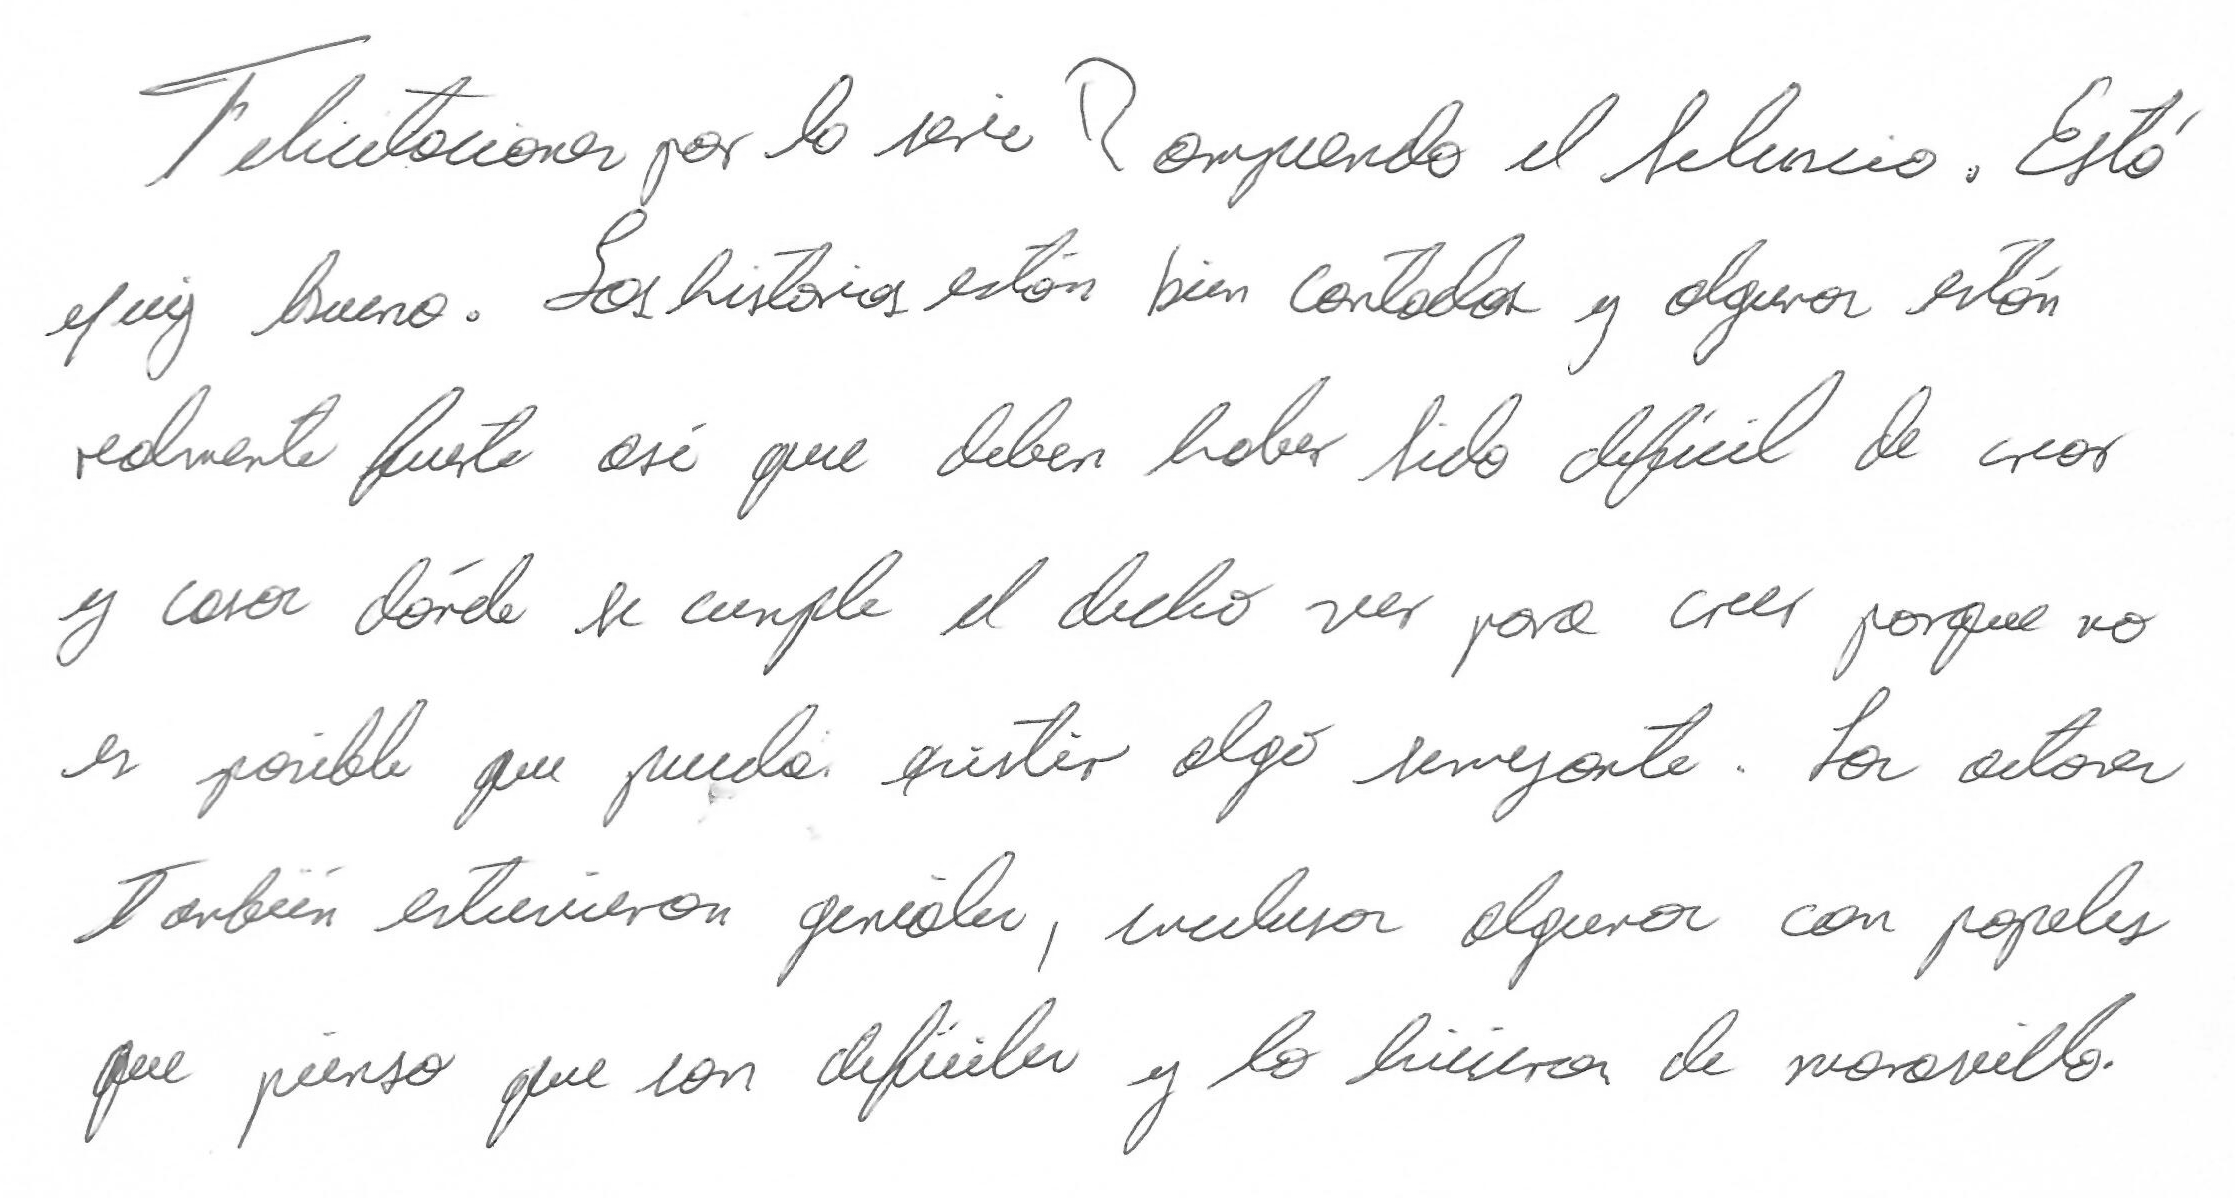 Felicitaciones por la serie Rompiendo el Silencio. Está
muy buena. Las historias están bien contadas y algunas están
realmente fuerte así que deben haber sido difícil de crear
y casos dónde se cumple el dicho ver para creer porque no
es posible que pueda existir algo semejante. Los actores
también estuvieron geniales, inclusos algunos con papeles
que pienso que son difíciles y lo hicieron de maravilla.